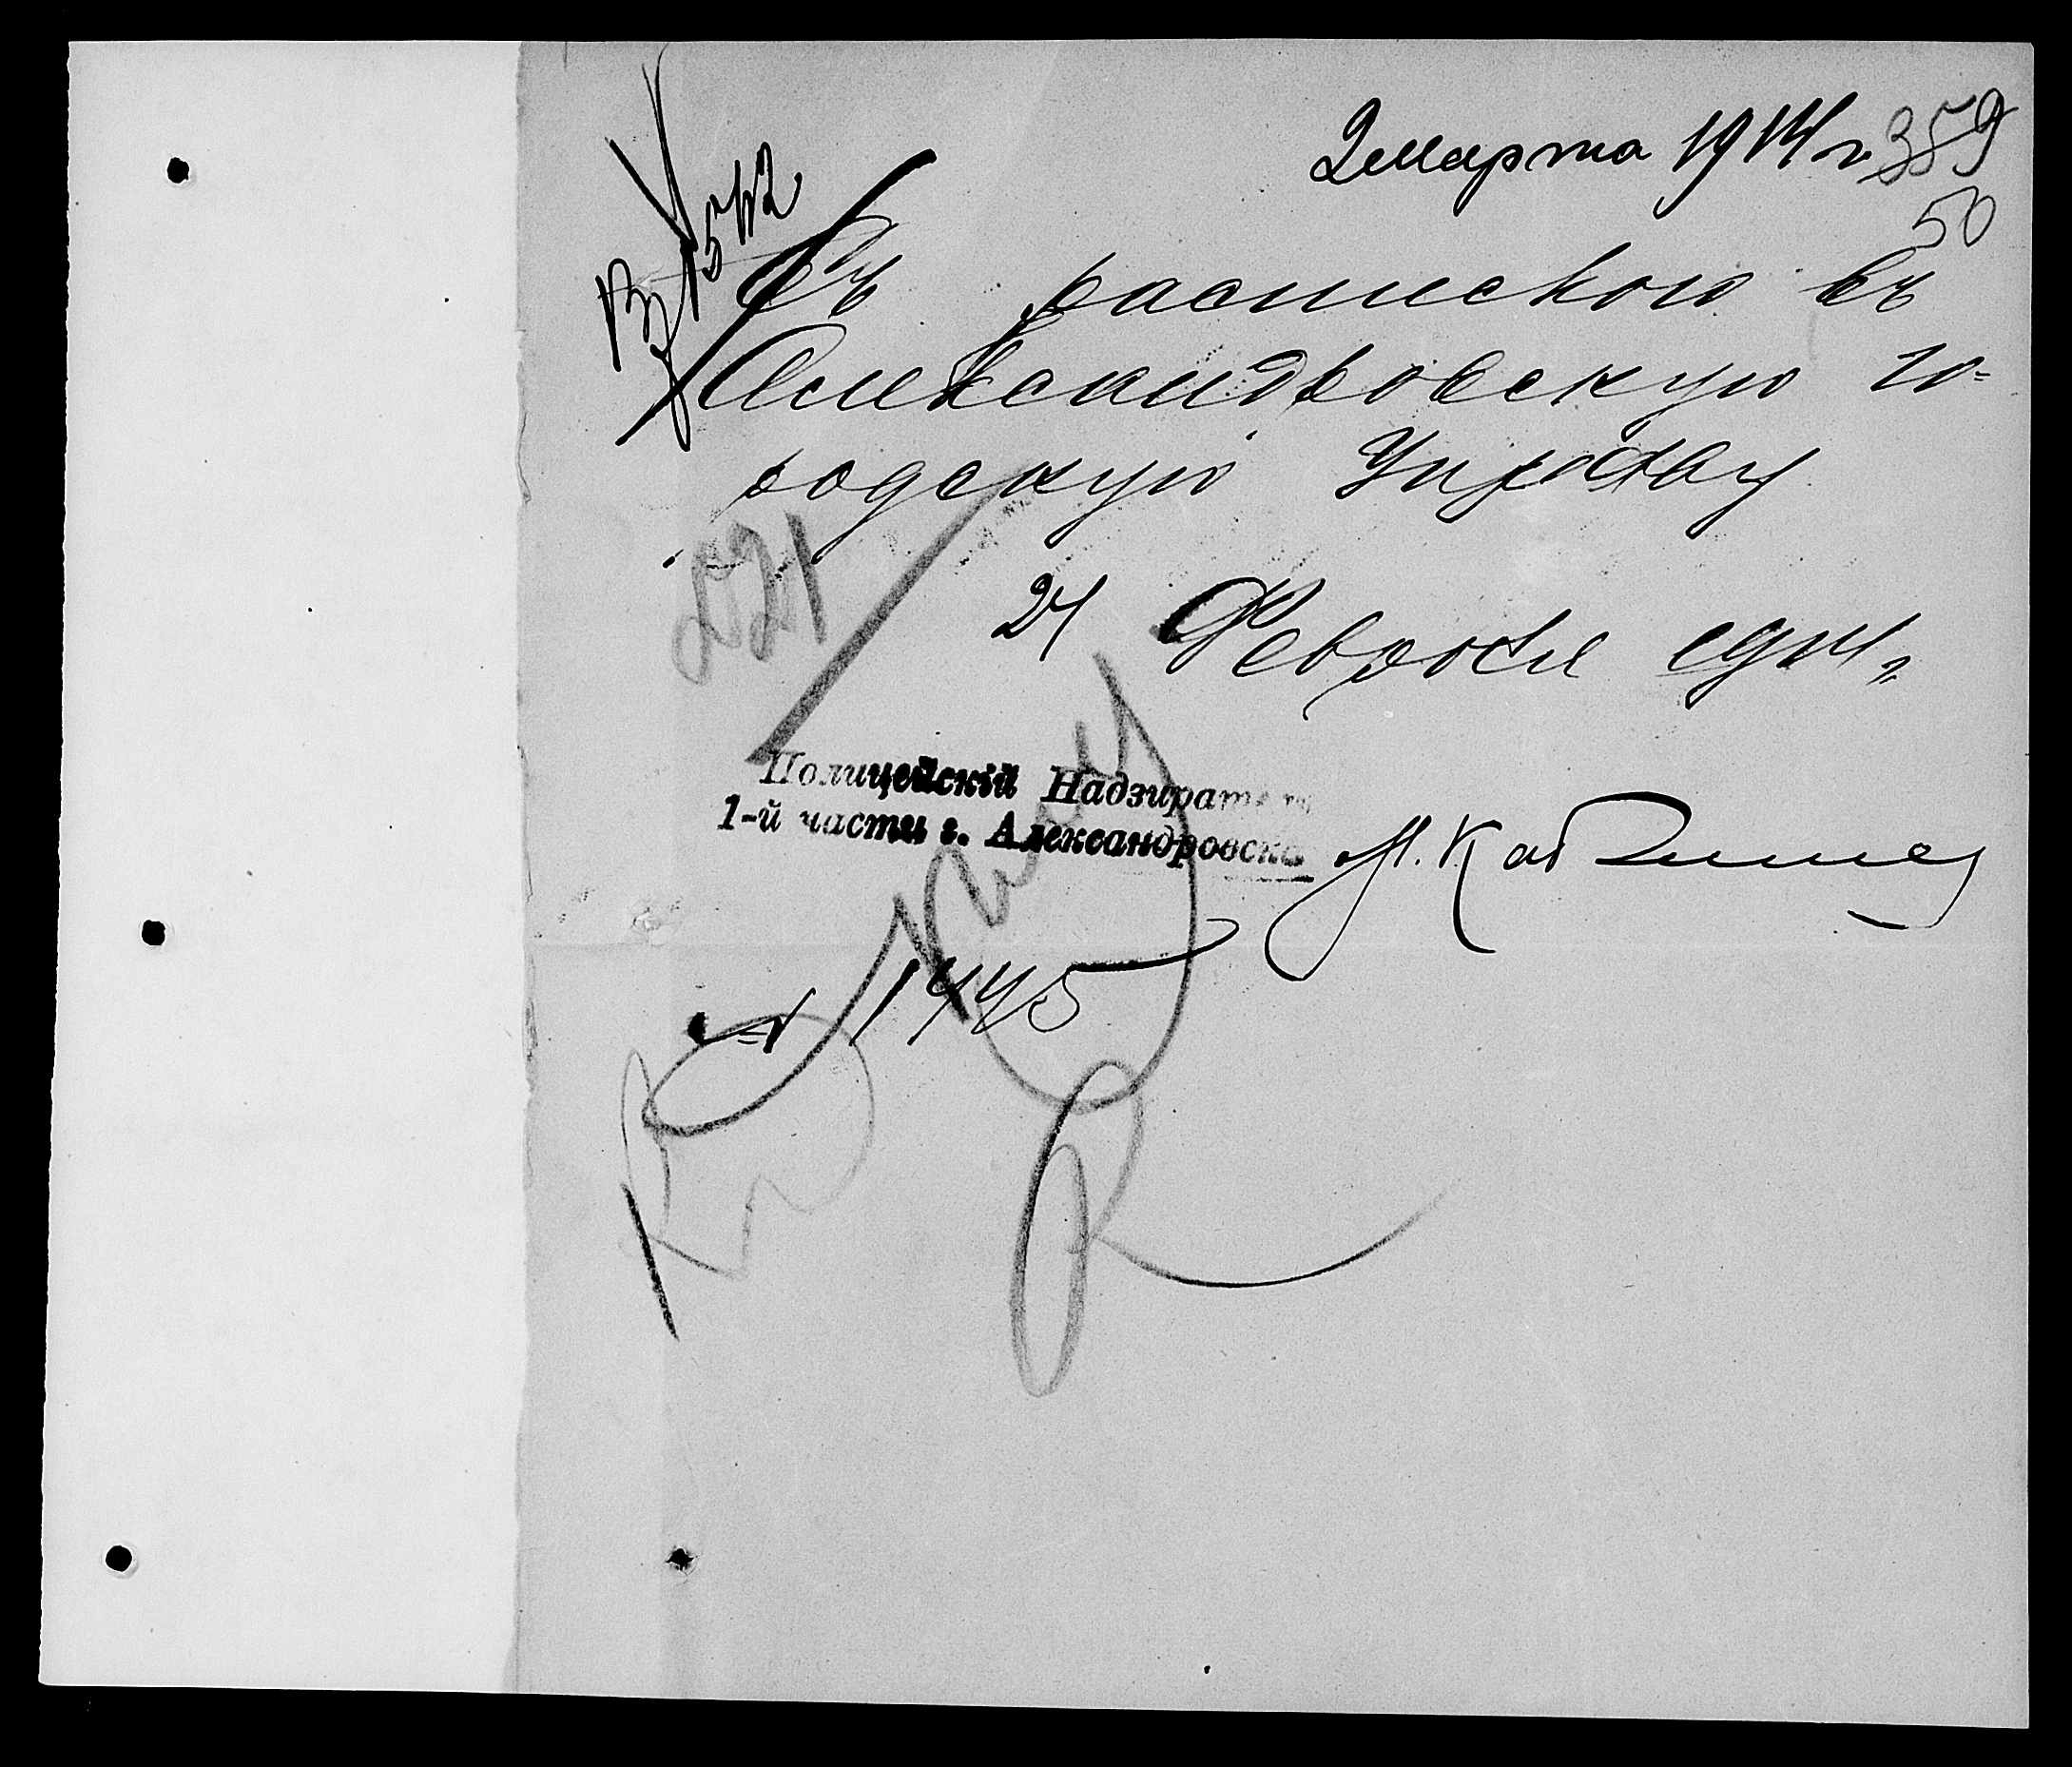 2 Марта 1914 г. 359
50
Вх 1542
Съ роспискою въ
Александровскую го=
родскую Управу
221
24 Февраля 1914 г.
Полицейскій Надзиратель
1-й части г. Александровска
№ 1445